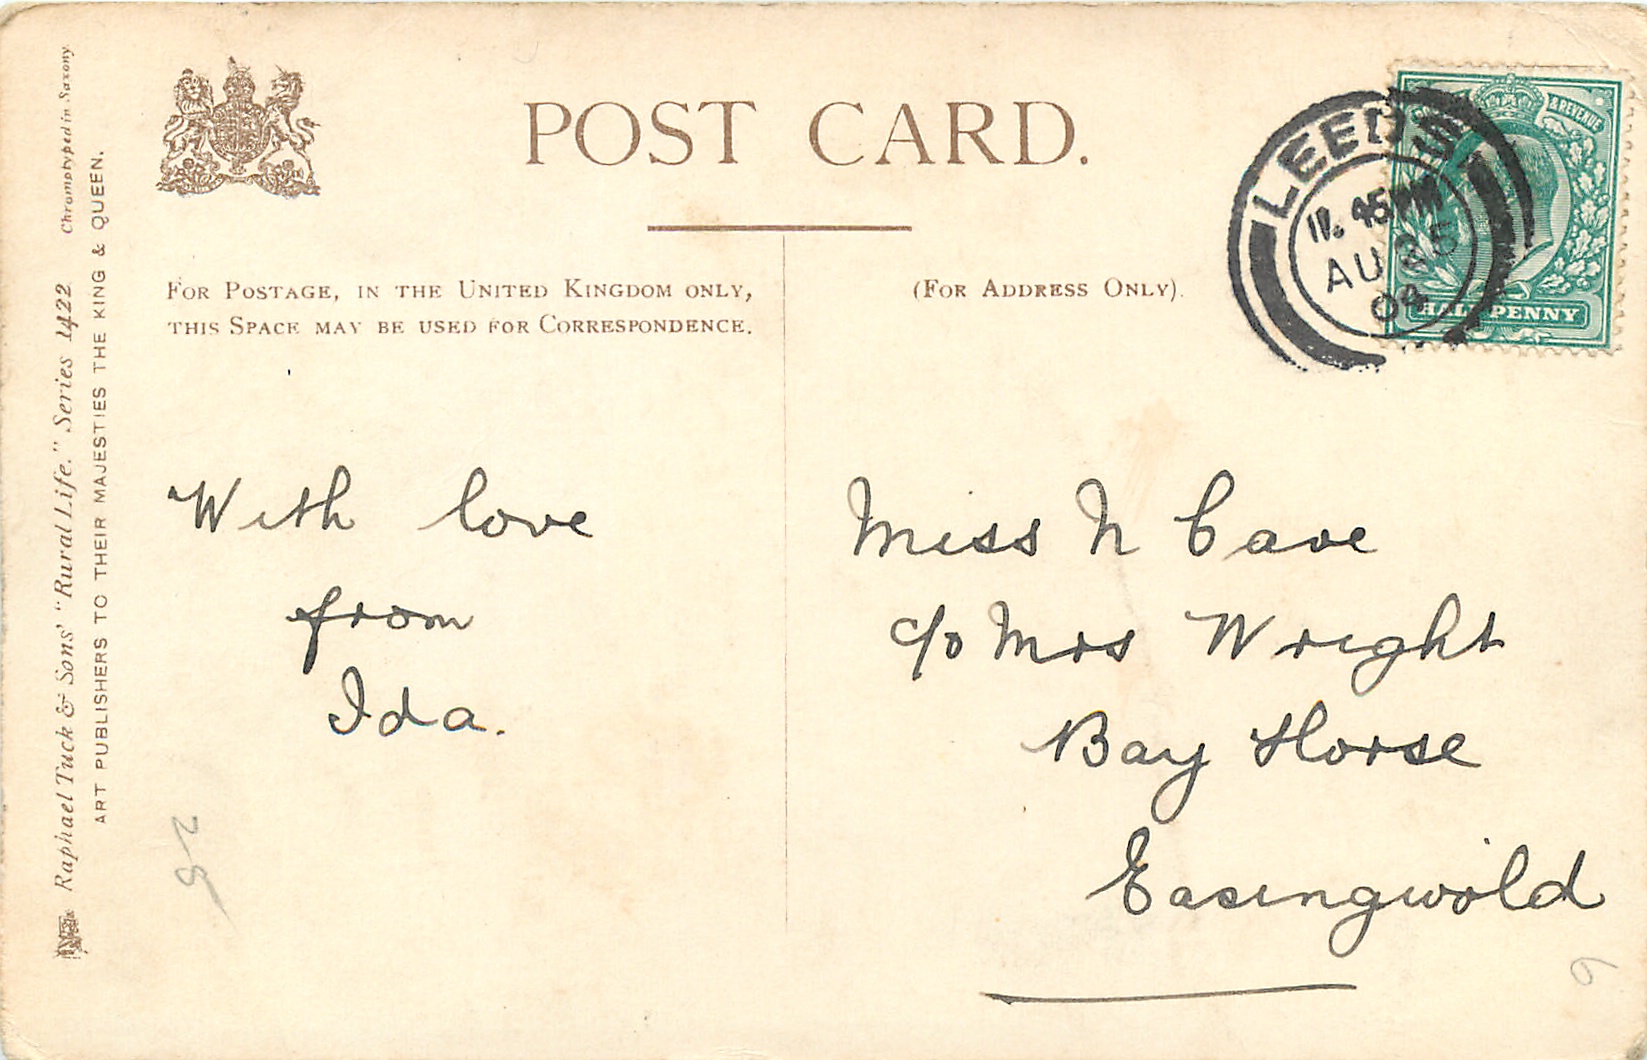 POST CARD.
FOR POSTAGE, IN THE UNITED KINGDOM ONLY,
THIS SPACE MAY BE USED FOR CORRESPONDENCE.
(FOR ADDRESS ONLY).
LEEDS
11.45PM
AU 25
& REVENUE
HALFPENNY
With love
from
Ida.
Miss N Cave
c/o Mrs Wright
Bay Horse
Easingwold
Raphael Tuck & Sons' "Rural Life." Series 1422 Chromotyped in Saxony
ART PUBLISHERS TO THEIR MAJESTIES THE KING & QUEEN.
25
6